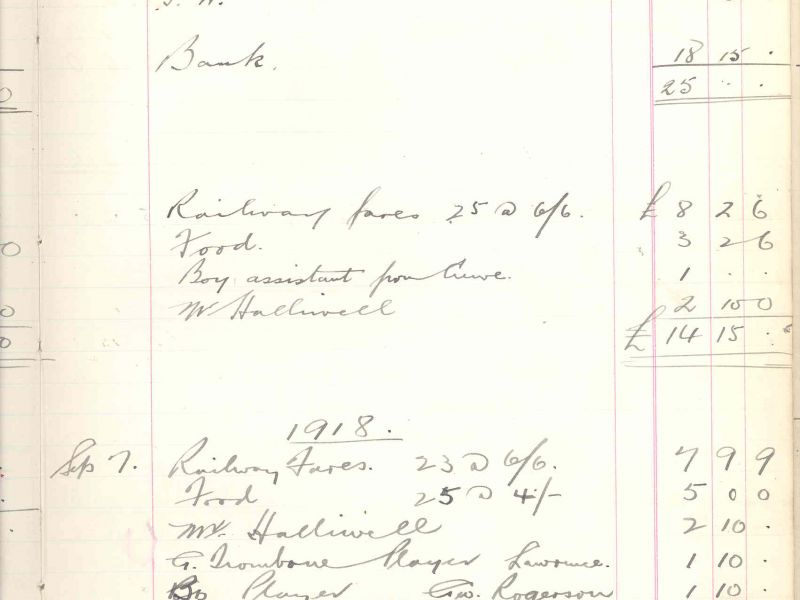 Bank. 18 15 .
25 . .
Railway fares 25 @ 6/6. £ 8 2 6
Food. 3 2 6
Boy assistant from Crewe. 1 . .
Mr Halliwell 2 10 0
£ 14 15 .
1918.
Sep 7. Railway Fares. 23 @ 6/6. 7 9 9
Food 25 @ 4/- 5 0 0
Mr. Halliwell 2 10 .
G. Trombone Player Lawrence. 1 10 .
Player Rogerson 1 10 .